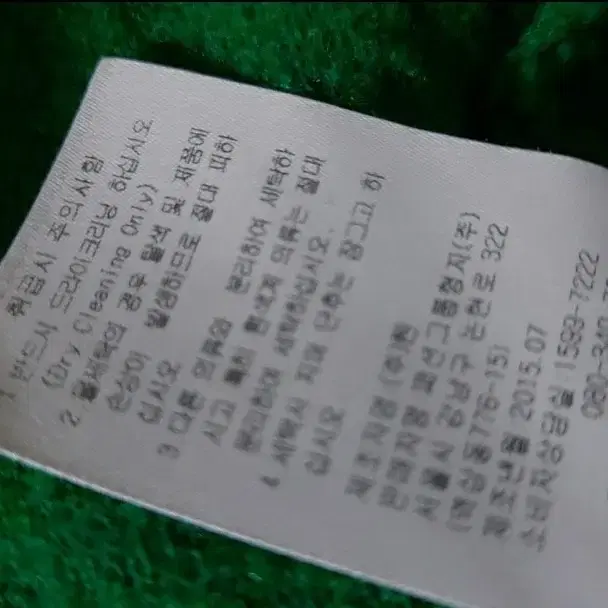 취급시 주의사항
1. 반드시 드라이크리닝 하십시오
(Dry Cleaning Only)
2. 물세탁의 경우 제품에
손상이
십시오
3. 다른 의류와 분리하여 세탁하
시고 특히 흰색계 의류는 절대
분리하여 세탁하십시오.
4. 세탁시 지퍼 단추는 잠그고 하
십시오
제조자명 (주)
판매자명 패션그룹형지(주)
서울시 강남구 논현로 322
(역삼동776-15)
제조년월 2015.07
소비자상담실 1593-7222
080-